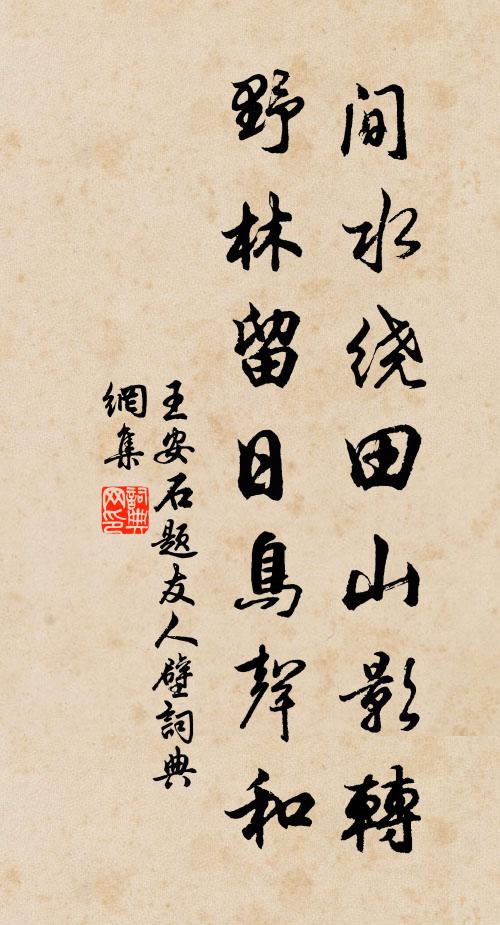 间水绕田山影轉
野林留日鳥聲和
王安石题友人壁詞典
網集
詞典网印